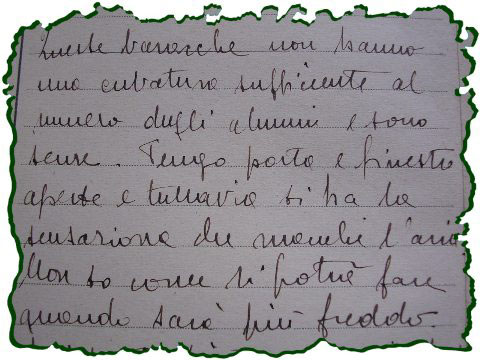 Queste baracche non hanno
una cubatura sufficiente al
numero degli alunni e sono
scure. Tengo porta e finestre
aperte e tuttavia si ha la
sensazione che manchi l'aria
Non so come si potrà fare
quando sarà più freddo.